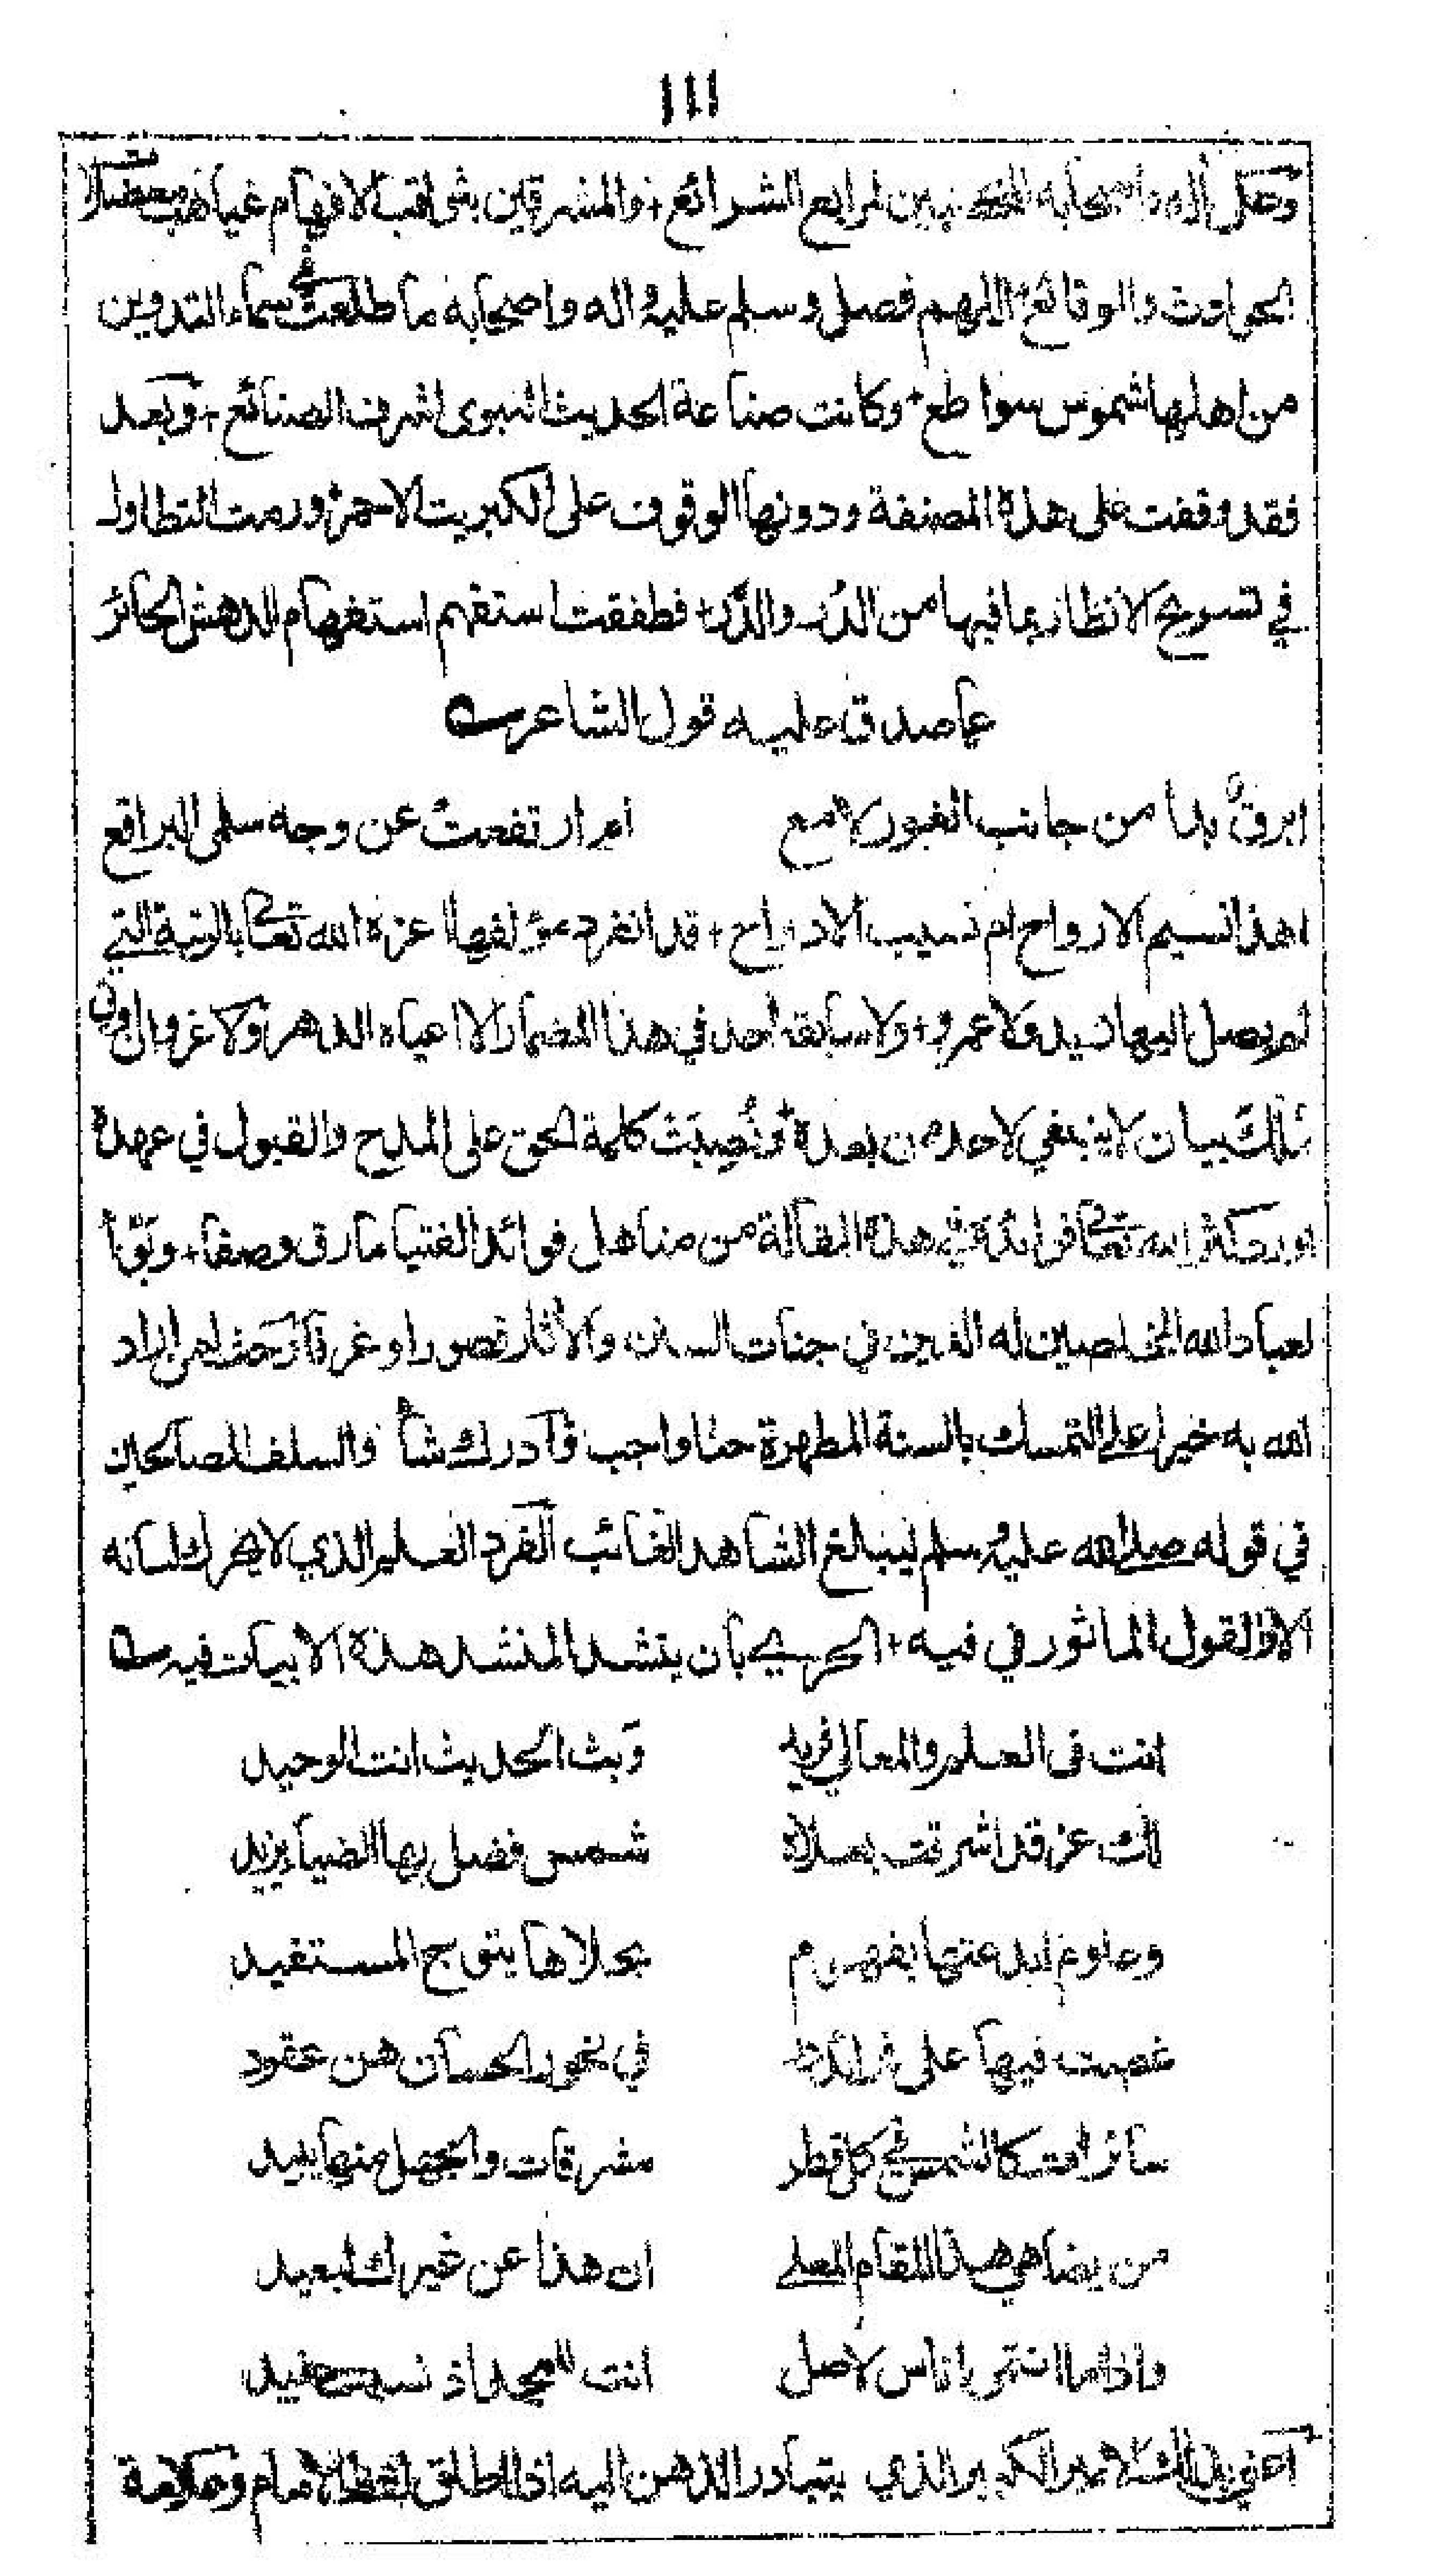 ١١١
وعلى آله واصحابه المنتجعين لمرابع الشرائع + والمشرقين بثواقب الافهام غياهب معضلات
الحوادث والوقائع + اللهم فصل وسلم عليه واله واصحابه ما طلعت في سماء التدوين
من اهلها شموس سواطع + وكانت صناعة الحديث النبوى اشرف الصنائع + وبعد
فقد وقفت على هذه المصنفة ودونها الوقوف على الكبريت الاحمر + ورمت التطاول
في تسريح الانظار بما فيها من الدر والدرر + فطفقت استفهم استفهام الدهش الحائر
عما صدق عليه قول الشاعر
ابرق بدا من جانب الغور لامع
ام ارتفعت عن وجه سلمى البراقع
اهذا نسيم الارواح ام نسيب الادواح + قد انفرد مؤلفها اعزه الله تعالى بالرتبة التي
لم يصل اليها زيد ولا عمرو + ولا سابقه احد في هذا المضمار الا اعياه الدهر + ولا غرو ان اوتي
ملك بيان لا ينبغي لاحد من بعده + ونُصِبَت كلمة الحق على المدح والقبول في عهده
الله تعالى فوائده في هذه المقالة من مناهل فوائد الفتيا ما رق وصفا + وبَوّأ
لعباد الله المخلصين له الدين في جنات السنن والآثار قصورا وغرفا + حض من اراد
الله به خيرا على التمسك بالسنة المطهرة حثا واجب + وادرك شأو السلف الصالحين
في قوله صلى الله عليه وسلم ليبلغ الشاهد الغائب الفرد العليم الذي لا يحرك لسانه
الا والقول الماثور في فيه + الحري بأن ينشد المنشد هذه الابيات فيه
انت فى العلم والمعالي فريد
وبث الحديث انت الوحيد
لك عز قد اشرقت بعلاه
شمس فضل بها الضيا يزيد
وعلوم ابدعتها بفهوم
بحلاها يتوج المستفيد
غصت فيها على فرائد
في نحور الحسان هن عقود
سائرات كالشمس في كل قطر
مشرقات والجهل منها يبيد
من يضاهي هذا المقام المعلى
ان هذا عن غيرك لبعيد
واذا ما انتمى اناس لاصل
انت للمجد اذ نسبت حفيد
اعني بذلك الامير الكبير الذي يتبادر الذهن اليه اذا اطلق لفظ الامام وعلامة